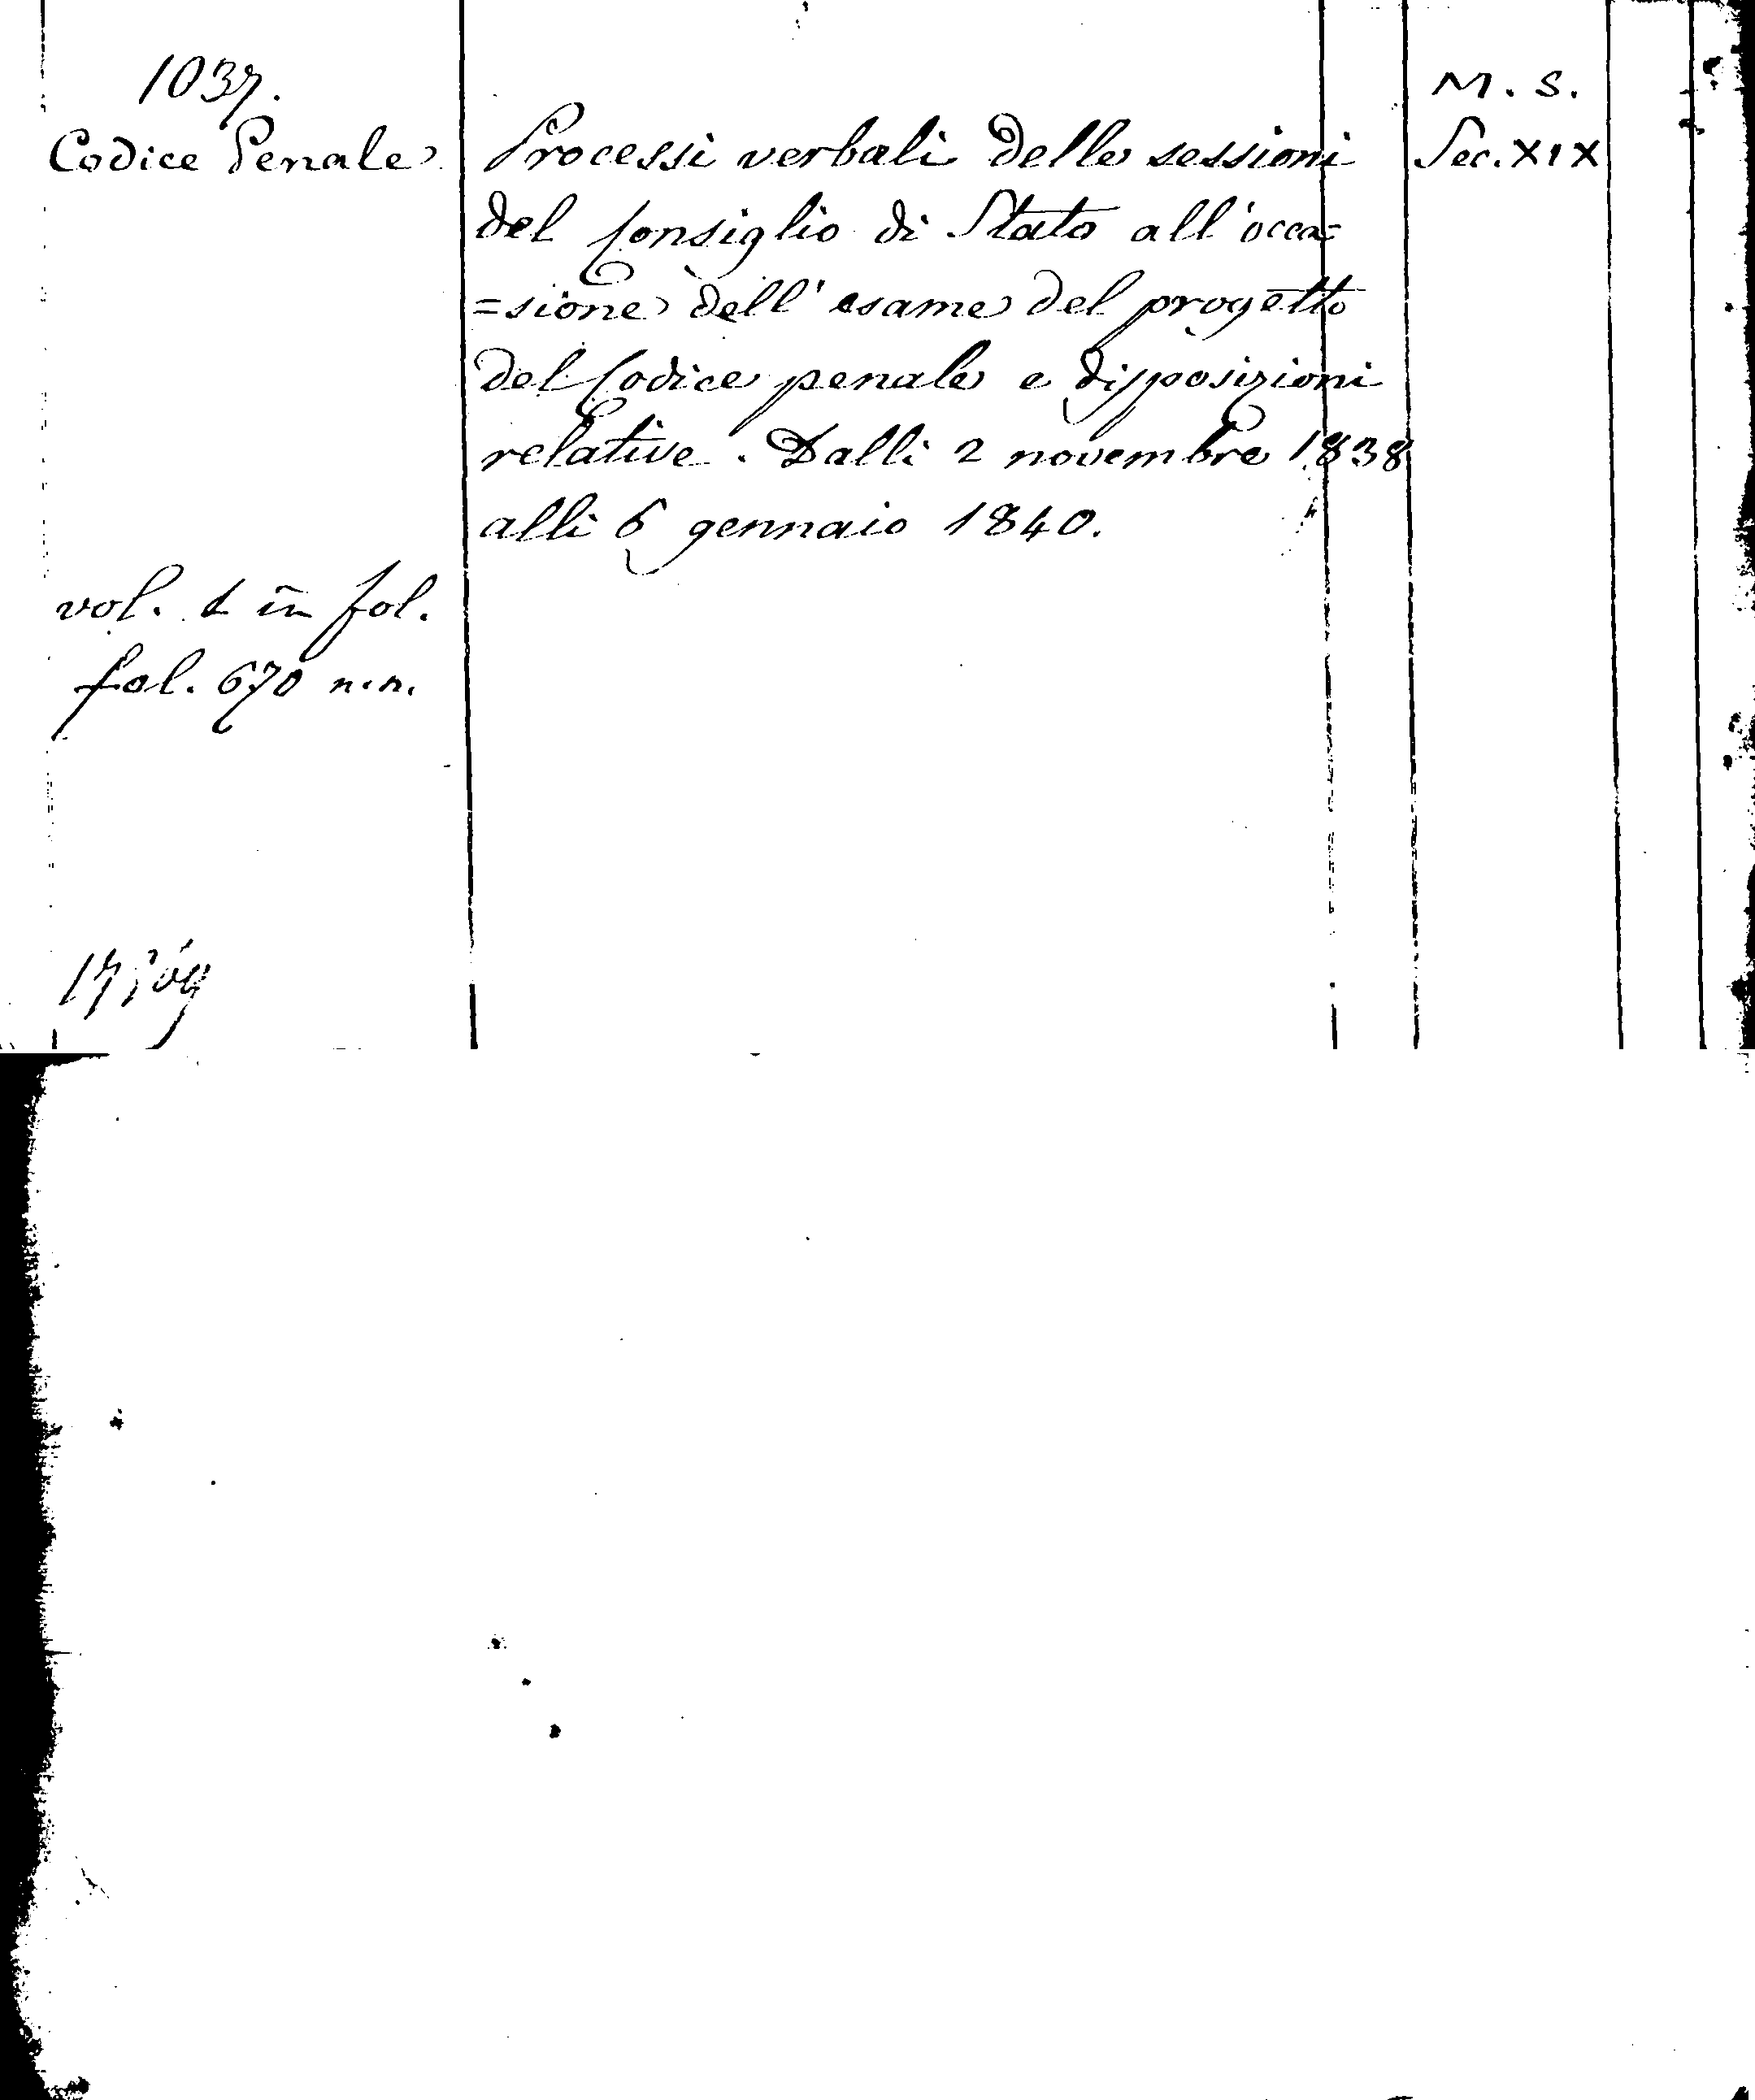 1037.
Codice Penale
Processi verbali delle sessioni
del Consiglio di Stato all'occa=
=sione dell'esame del progetto
del Codice penale e disposizioni
relative. Dalli 2 novembre 1838
alli 6 gennaio 1840.
M. S.
Sec. XIX
vol. 1 in fol.
fol. 670 n.n.